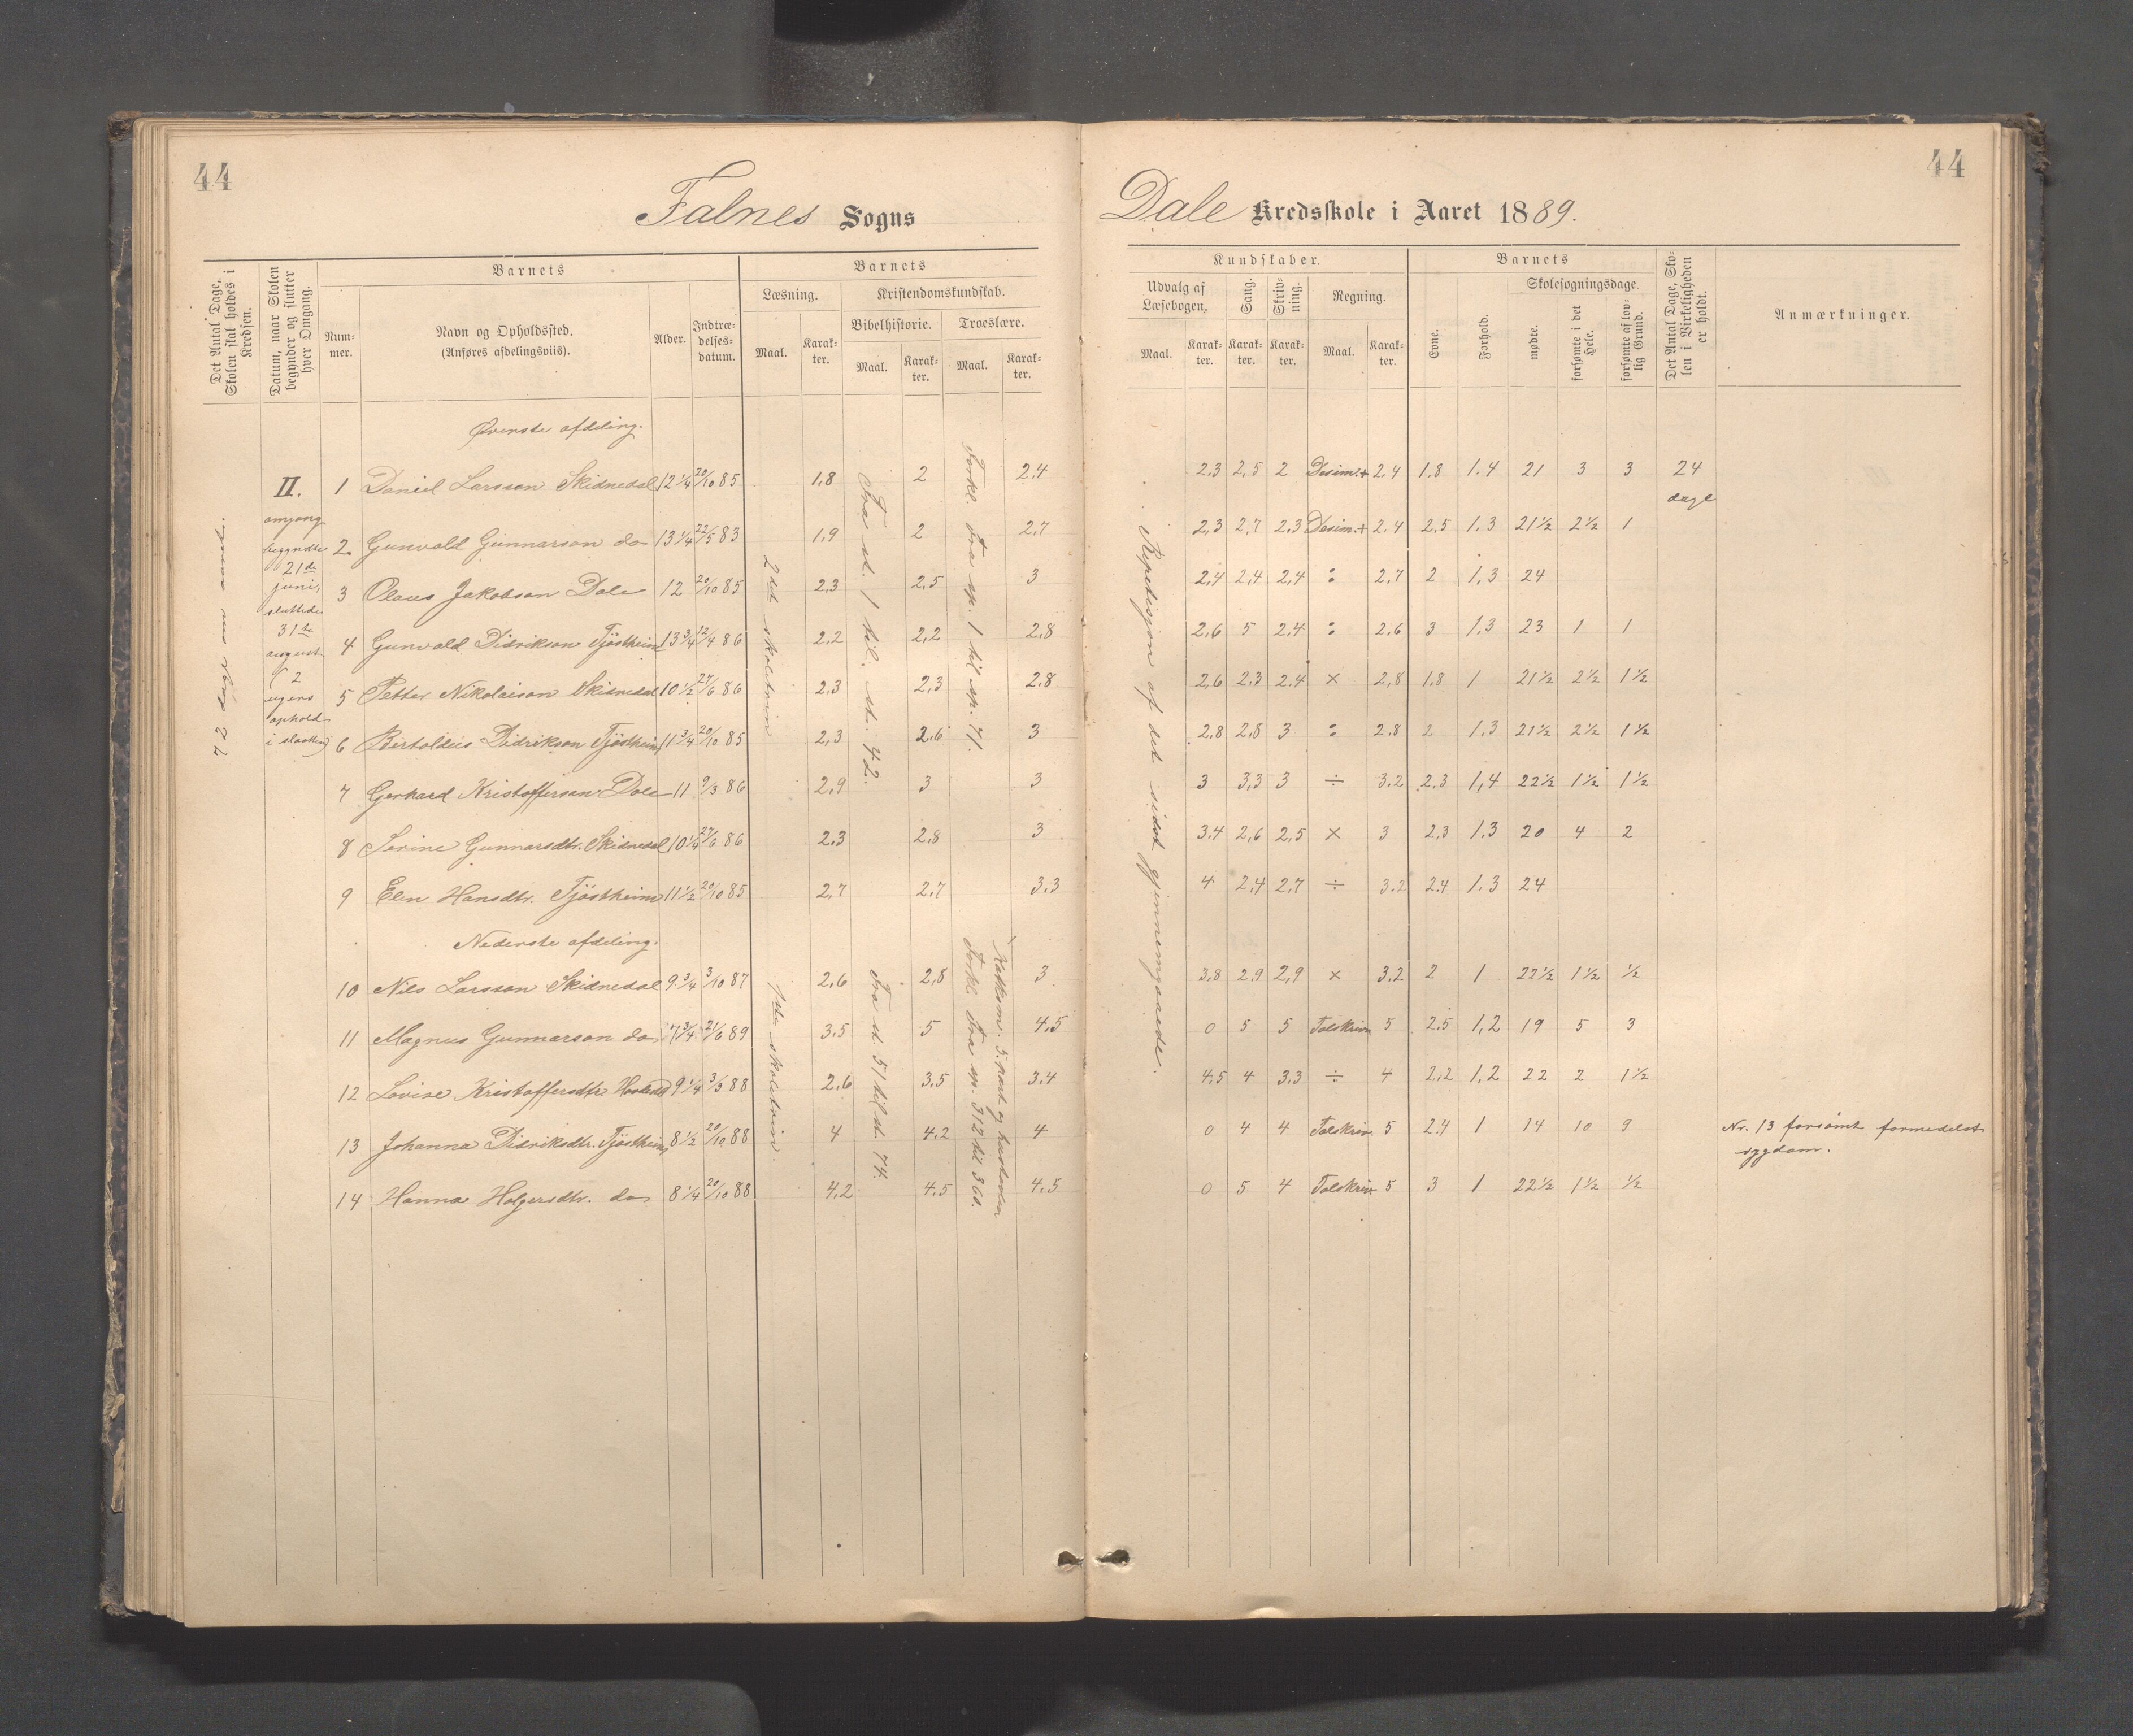 44
44
Falnes Sogns
Dale Kredsskole i Aaret 1889.
Det Antal Dage, Skolen skal holdes i Kredsen.
Datum, naar Skolen begynder og slutter hver Omgang.
Barnets
Nummer.
Navn og Opholdssted.
(Anføres afdelingsviis).
Alder.
Indtrædelsesdatum.
Barnets
Læsning.
Maal.
Karakter.
Kristendomskundskab.
Bibelhistorie.
Maal.
Karakter.
Troeslære.
Maal.
Karakter.
Kundskaber.
Udvalg af Læsebogen.
Maal.
Karakter.
Sang.
Karakter.
Skrivning.
Karakter.
Regning.
Maal.
Karakter.
Barnets
Evne.
Forhold.
Skolesøgningsdage
mødte.
forsømte i det Hele.
forsømte af lovlig Grund.
Det Antal Dage, Skolen i Virkeligheden er holdt.
Anmærkninger.
72 dage om aaret.
II.
omgang
begyndte
21de
juni,
sluttede
31te
august
(2
ugers
ophold
i slaatten)
2det skoletrin
Fra st. 1 til st. 42.
Forkl. Fra sp. 1 til sp. 71.
Repetisjon af det sidst gjennemgaaede.
Øverste afdeling.
1 Daniel Larsson Skidnedal 12 1/4 20/10 85 1,8 2 2,4 2,3 2,5 2 Desim.+ 2,4 1,8 1.4 21 3 3 24 dage
2 Gunvald Gunnarson do 13 1/4 22/5 83 1,9 2 2,7 2,3 2,7 2.3 Desim.+ 2.4 2.5 1.3 21 1/2 2 1/2 1
3 Olaus Jakobson Dale 12 20/10 85 2,3 2,5 3 2,4 2,4 2,4 : 2,7 2 1,3 24
4 Gunvald Didrikson Tjöstheim 13 3/4 12/4 86 2,2 2,2 2,8 2,6 5 2.4 : 2.6 3 1.3 23 1 1
5 Petter Nikolaison Skidnedal 10 1/2 27/6 86 2,3 2,3 2.8 2,6 2.3 2.4 × 2,8 1.8 1 21 1/2 2 1/2 1 1/2
6 Bertoldus Didrikson Tjöstheim 11 3/4 20/10 85 2,3 2.6 3 2.8 2,8 3 : 2.8 2 1.3 21 1/2 2 1/2 1 1/2
7 Gerhard Kristofferson Dale 11 9/3 86 2,9 3 3 3 3,3 3 ÷ 3.2 2.3 1,4 22 1/2 1 1/2 1 1/2
8 Serine Gunnarsdtr. Skidnedal 10 1/4 27/6 86 2,3 2,8 3 3.4 2,6 2,5 × 3 2,3 1.3 20 4 2
9 Elen Hansdtr. Tjöstheim 11 1/2 20/10 85 2,7 2,7 3.3 4 2,4 2,7 ÷ 3.2 2.4 1.3 24
Nederste afdeling.
1ste skoletrin.
Fra st. 51 til st. 74.
Forkl. Fra sp. 312 til 361.
10 Nils Larsson Skidnedal 9 3/4 3/10 87 2,6 2,8 3 3,8 2.9 2,9 × 3.2 2 1 22 1/2 1 1/2 1/2
11 Magnus Gunnarson do 7 3/4 21/6 89 3.5 5 4.5 0 5 5 Talskriv 5 2.5 1,2 19 5 3
12 Lovise Kristoffersdtr. 9 1/4 3/3 88 2,6 3,5 3.4 4,5 4 3.3 ÷ 4 2,2 1,2 22 2 1 1/2
13 Johanna Didriksdtr. Tjöstheim 8 1/2 20/10 88 4 4.2 4 0 4 4 Talskriv. 5 2.4 1 14 10 9 Nr. 13 forsømt formedelst
sygdom.
14 Hanna Holgersdtr. do 8 1/4 20/10 88 4,2 4,5 4,5 0 5 4 Talskriv 5 3 1 22 1/2 1 1/2 1/2